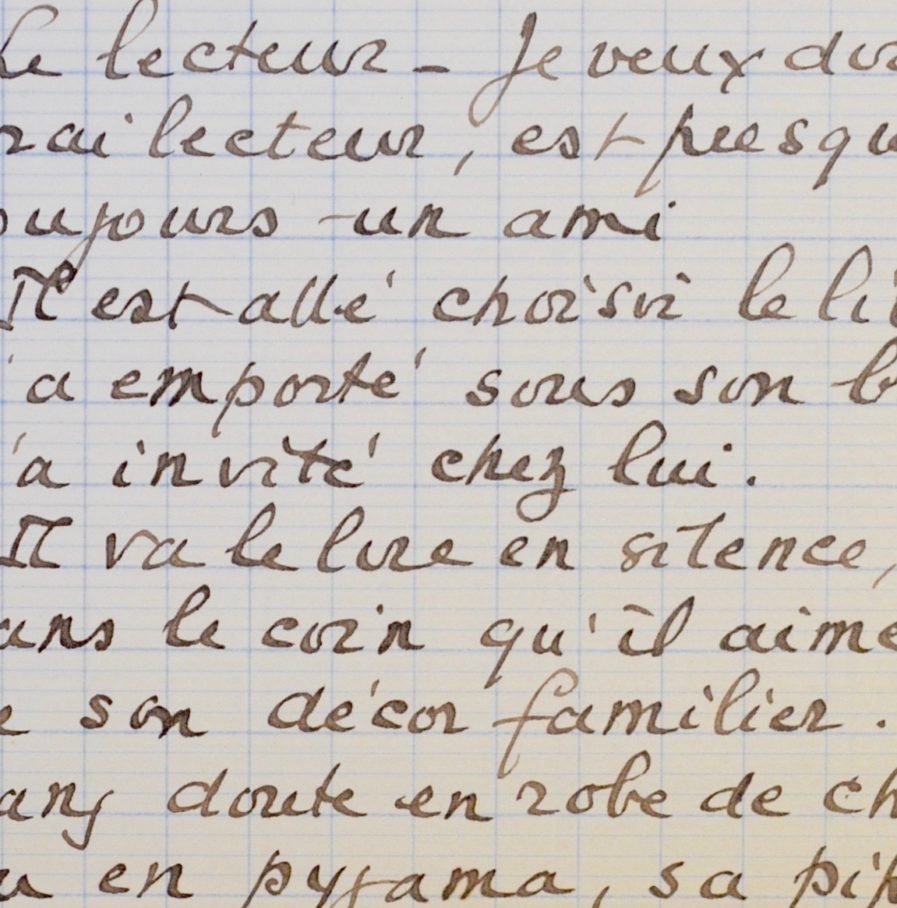 Le lecteur - Je veux dir
rai lecteur, est presqu
oujours un ami
Il est allé choisir le li
'a emporté sous son b
'a invité chez lui.
Il va le lire en silence,
ans le coin qu'il aime
e son décor familier.
ans doute en robe de ch
u en pyjama, sa pip